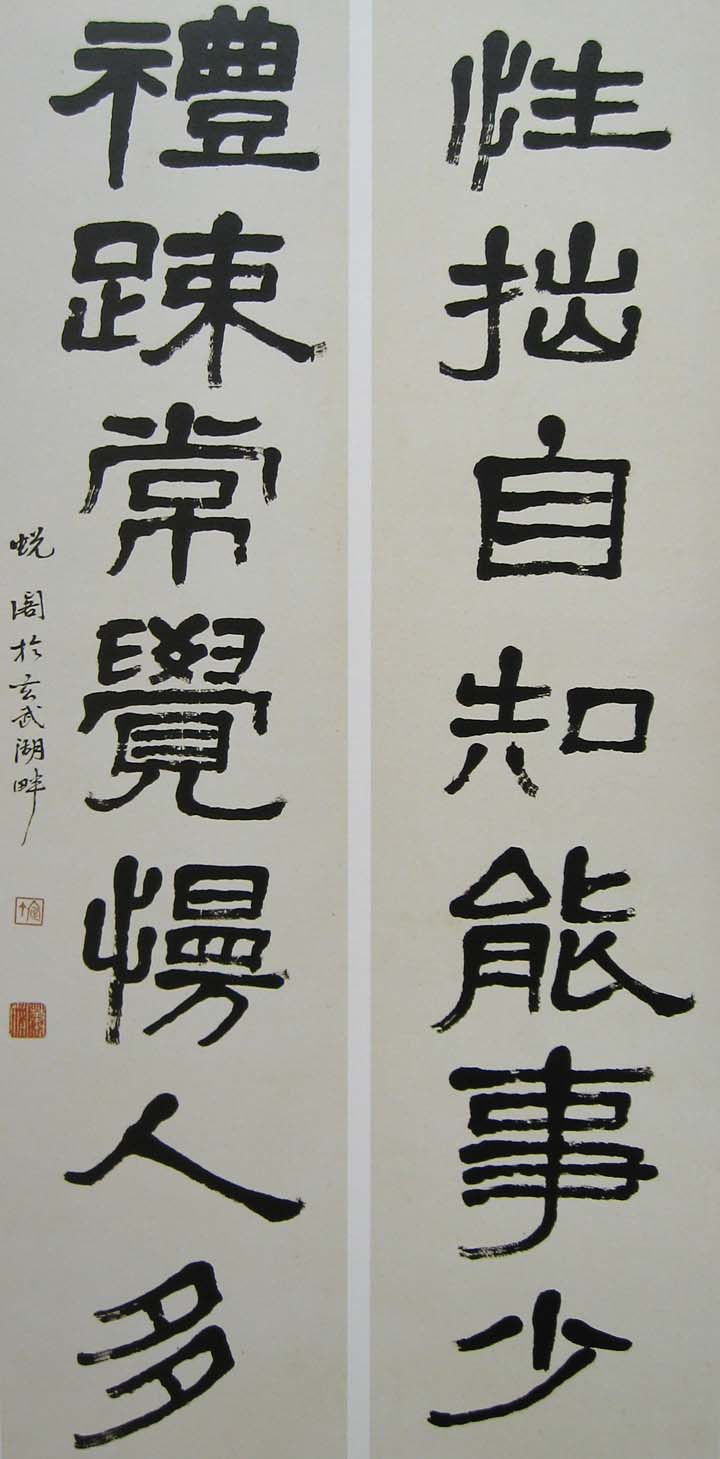 性拙自知能事少
禮踈常覺慢人多
蛻闇於玄武湖畔